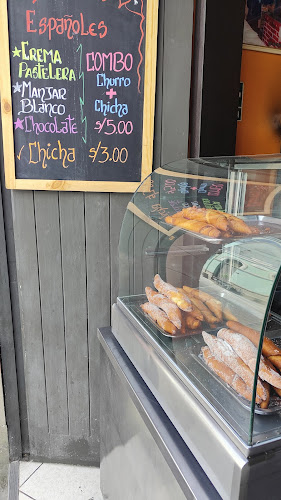 Españoles
★ Crema Pastelera
★ Manjar Blanco
★ Chocolate
✓ Chicha s/3.00
COMBO
Churro
+
Chicha
s/5.00